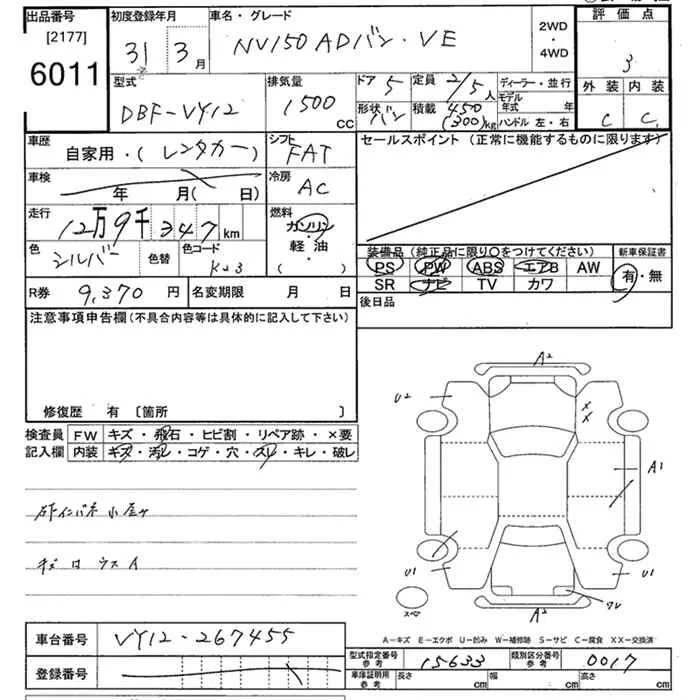 出品番号
[2177]
6011
初度登録年月
31 3月
車名・グレード
NV150 ADバン・VE
2WD
・
4WD
評価点
3
外装 内装
C C
型式
DBF-VY12
排気量
1500
CC
ドア 5
定員 2/5人
ディーラー・並行
モデル年式 年
形状 バン
積載 450 (300)kg
ハンドル 左・右
車歴
自家用・(レンタカー)
シフト
FAT
セールスポイント (正常に機能するものに限ります)
車検
年 月( 日)
冷房
AC
走行
12万9千347km
燃料
ガソリン
・
軽油
・
( )
色
シルバー
色替
色コード
K23
装備品 (純正品に限り○をつけてください)
新車保証書
PS PW ABS エアB AW
有・無
SR ナビ TV カワ
R券 9,370円
名変期限 月 日
後日品
注意事項申告欄(不具合内容等は具体的に記入して下さい)
修復歴 有 〔箇所 〕
検査員
記入欄
FW キズ・飛石・ヒビ割・リペア跡・×要
内装 キズ・汚レ・コゲ・穴・スレ・キレ・破レ
キズ ロ ウス A
A2
U2
XX
A1
U1
U1
ワレ
A2
スペア
A-キズ E-エクボ U-凹み W-補修跡 S-サビ C-腐食 XX-交換済
車台番号 VY12-267455
登録番号
型式指定番号
参考
15633
類別区分番号
参考
0017
車庫証明用
参考
長さ cm
幅 cm
高さ cm